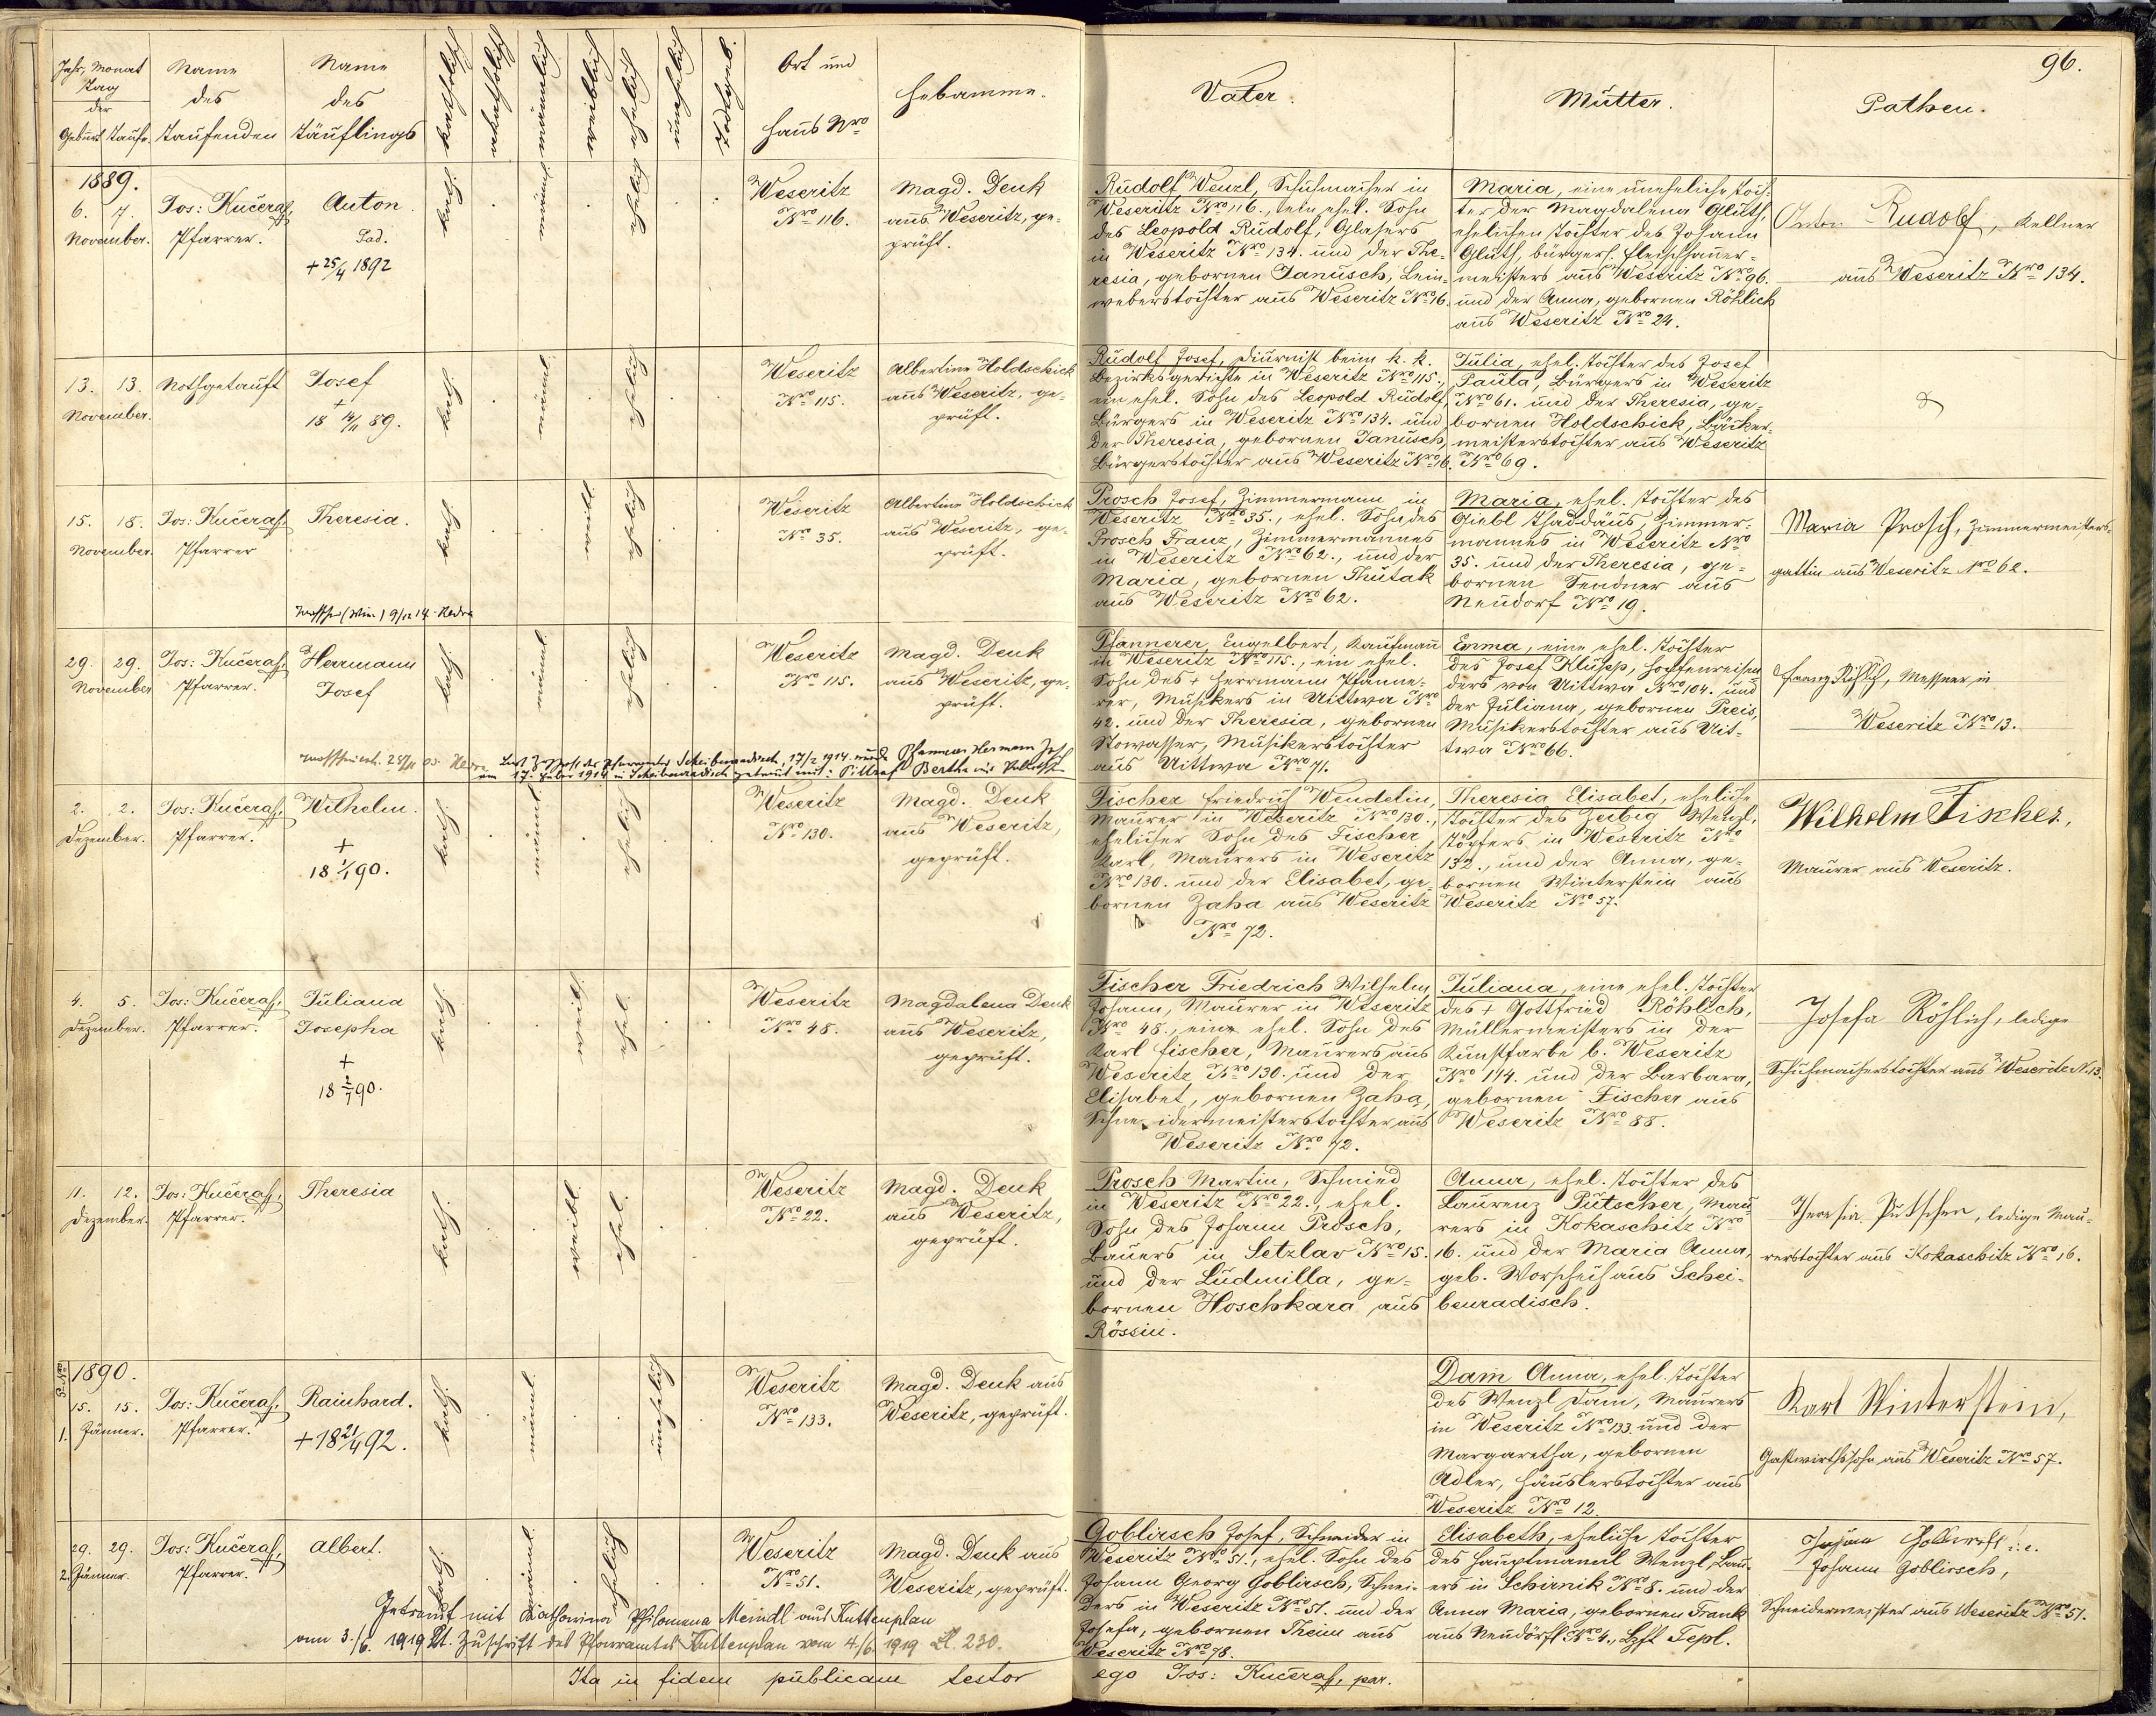 96.
Jahr, Monat
Tag
der
Geburt Taufe.
Name
des
Taufenden
Name
des
Täuflings
katholisch
akatholisch
männlich
weiblich
ehelich
unehelich
Todtgeb.
Ort und
Haus Nro
Hebamme.
Vater.
Mutter.
Pathen.
1889.
6. 17.
November.
Jos: Kučera,
Pfarrer.
Anton.
+ 25/4 1892
kath.
männl.
ehelich
Weseritz
Nro 116.
Magd. Denk
aus Weseritz, ge-
prüft.
Rudolf Wenzl, Schuhmacher in
Weseritz Nro 116., ein ehel. Sohn
des Leopold Rudolf, Glasers
in Weseritz Nro 134. und der The-
resia, gebornen Janusch, Lein-
weberstochter aus Weseritz Nro 16.
Maria, eine uneheliche Toch-
ter der Magdalena Gluth,
ehelichen Tochter des Johann
Gluth, bürgerl. Fleischhauer-
meisters aus Weseritz Nro 96.
und der Anna, gebornen Röhlich
aus Weseritz Nro 24.
Anton Rudolf, Kellner
aus Weseritz Nro 134.
13. 13.
November.
Nothgetauft
Josef
+
18 14/11 89.
kath.
männl.
ehelich
Weseritz
Nro 115.
Albertine Holdschick
aus Weseritz, ge-
prüft.
Rudolf Josef, Diurnist beim k. k.
Bezirksgerichte in Weseritz Nro 115.,
ein ehel. Sohn des Leopold Rudolf,
Bürgers in Weseritz Nro 134. und
der Theresia, gebornen Janusch,
Bürgerstochter aus Weseritz Nro 16.
Julia, ehel. Tochter des Josef
Paula, Bürgers in Weseritz
Nro 61. und der Theresia, ge-
bornen Holdschick, Bäcker-
meisterstochter aus Weseritz
Nro 69.
15. 18.
November.
Jos: Kučera,
Pfarrer
Theresia.
kath.
weibl.
ehelich
Weseritz
Nro 35.
Albertine Holdschick
aus Weseritz, ge-
prüft.
Prosch Josef, Zimmermann in
Weseritz Nro 35., ehel. Sohn des
Prosch Franz, Zimmermannes
in Weseritz Nro 62., und der
Maria, gebornen Thutak
aus Weseritz Nro 62.
Maria, ehel. Tochter des
Giebl Thaddäus, Zimmer-
mannes in Weseritz Nro
35. und der Theresia, ge-
bornen Sendner aus
Neudorf Nro 19.
Maria Prosch, Zimmermeisters-
gattin aus Weseritz Nro 62.
29. 29.
November
Jos: Kučera,
Pfarrer.
Herrmann
Josef
kath.
männl.
ehelich
Weseritz
Nro 115.
Magd. Denk
aus Weseritz, ge-
prüft.
Pfannerer Engelbert, Kaufmann
in Weseritz Nro 115., ein ehel.
Sohn des + Herrmann Pfanne-
rer, Musikers in Uittwa Nro
42. und der Theresia, gebornen
Stowasser, Musikerstochter
aus Uittwa Nro 71.
Emma, eine ehel. Tochter
des Josef Klupp, Hopfenreisen-
ders von Uittwa Nro 104. und
der Juliana, gebornen Preis,
Musikerstochter aus Uit-
twa Nro 66.
Franz Röhlich, Messner in
Weseritz Nro 13.
Laut Zuschrift des Pfarramtes Scheibenradisch, 17/2 1914 wurde Pfannerer Hermann Josef
am 17. Feber 1914 in Scheibenradisch getraut mit: Bertha
2. 2.
Dezember.
Jos: Kučera,
Pfarrer.
Wilhelm.
+
18 1/1 90.
kath.
männl.
ehelich
Weseritz
Nro 130.
Magd. Denk
aus Weseritz,
geprüft.
Fischer Friedrich Wendelin,
Maurer in Weseritz Nro 130.,
ehelicher Sohn des Fischer
Karl, Maurers in Weseritz
Nro 130. und der Elisabet, ge-
bornen Zaha aus Weseritz
Nro 72.
Theresia Elisabet, eheliche
Tochter des Zeibig Wenzl,
Töpfers in Weseritz Nro
132., und der Anna, ge-
bornen Winterstein aus
Weseritz Nro 57.
Wilhelm Fischer,
Maurer aus Weseritz.
4. 5.
Dezember.
Jos: Kučera,
Pfarrer.
Juliana
Josepha
+
18 2/7 90.
kath.
weibl.
ehel.
Weseritz
Nro 48.
Magdalena Denk
aus Weseritz,
geprüft.
Fischer Friedrich Wilhelm
Johann, Maurer in Weseritz
Nro 48., ein ehel. Sohn des
Karl Fischer, Maurers aus
Weseritz Nro 130. und der
Elisabet, gebornen Zaha,
Schneidermeisterstochter aus
Weseritz Nro 72.
Juliana, eine ehel. Tochter
des + Gottfried Röhlich,
Müllermeisters in der
Kunstfarbe b. Weseritz
Nro 114. und der Barbara,
gebornen Fischer aus
Weseritz Nro 88.
Josefa Röhlich, ledige
Schuhmacherstochter aus Weseritz N. 13.
11. 12.
Dezember.
Jos: Kučera,
Pfarrer.
Theresia
kath.
weibl.
ehel.
Weseritz
Nro 22.
Magd. Denk
aus Weseritz,
geprüft.
Prosch Martin, Schmied
in Weseritz Nro 22., ehel.
Sohn des Johann Prosch,
Bauers in Setzlav Nro 15.
und der Ludmilla, ge-
bornen Hoschkara aus
Rössin.
Anna, ehel. Tochter des
Laurenz Putscher, Mau-
rers in Kokaschitz Nro
16. und der Maria Anna,
geb. Worschech aus Schei-
benradisch.
Theresia Putscher, ledige Mau-
rerstochter aus Kokaschitz Nro 16.
1890.
15. 15.
1. Jänner.
Jos: Kučera,
Pfarrer.
Rainhard.
+ 18 21/4 92.
kath.
männl.
unehelich
Weseritz
Nro 133.
Magd. Denk aus
Weseritz, geprüft.
Dam Anna, ehel. Tochter
des Wenzl Dam, Maurers
in Weseritz Nro 133. und der
Margaretha, gebornen
Adler, Häuslerstochter aus
Weseritz Nro 12.
Karl Winterstein,
Gastwirthssohn aus Weseritz Nro 57.
29. 29.
2. Jänner.
Jos: Kučera,
Pfarrer.
Albert.
kath.
männl.
ehelich
Weseritz
Nro 51.
Magd. Denk aus
Weseritz, geprüft.
Goblirsch Josef, Schneider in
Weseritz Nro 51., ehel. Sohn des
Johann Georg Goblirsch, Schnei-
ders in Weseritz Nro 51. und der
Josefa, gebornen Theim aus
Weseritz Nro 78.
Elisabeth, eheliche Tochter
des Hauptmannl Wenzl, Bau-
ers in Schirnik Nro 8. und der
Anna Maria, gebornen Frank
aus Neudörfl Nro 4., Bzft Tepl.
Johann Goblirsch,
Schneidermeister aus Weseritz Nro 51.
Getraut mit Katharina Philomena Meindl aus Kuttenplan
am 3./6. 1919 Lt. Zuschrift des Pfarramtes Kuttenplan vom 4./6. 1919 Zl. 230.
Ita in fidem publicam testor
ego Jos: Kučera, par.